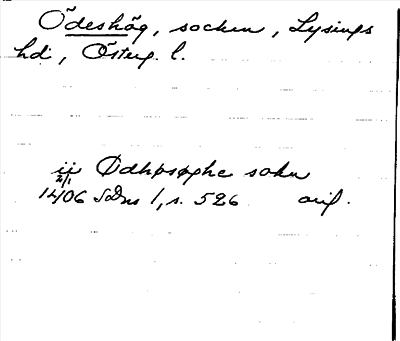 Ödeshög, socken, Lysings
hd, Österg. l.
ij Ødhøsøghe sokn
2/1
1406 SDns 1, s. 526 orig.